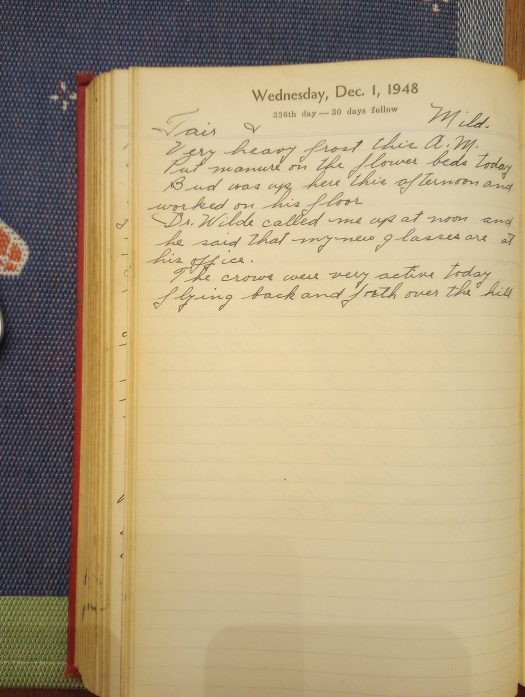 Wednesday, Dec. 1, 1948
336th day — 30 days follow
Fair & Mild.
Very heavy frost this A.M.
Put manure on the flower beds today
Bud was up here this afternoon and
worked on his floor
Dr. Wilde called me up at noon and
he said that my new glasses are at
his office.
The crows were very active today
flying back and forth over the hill